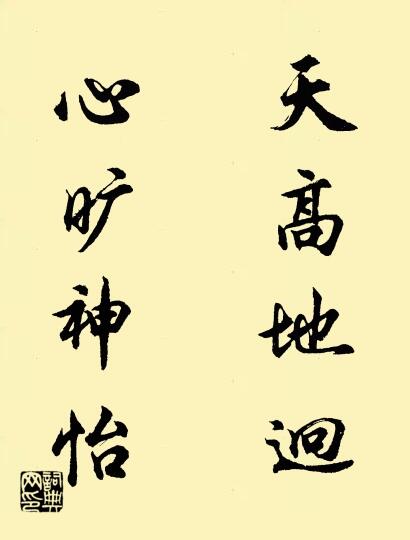 天高地迥
心旷神怡
詞典网印